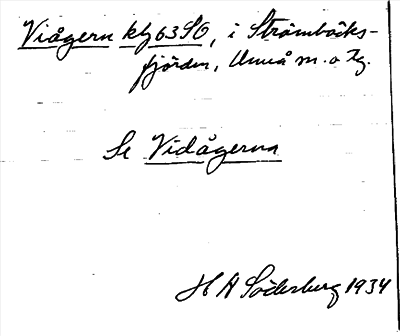 Viågern klj 63 SO, i Strömbäcks-
fjärden, Umeå m. o tg.
Se Vidågerna
H A Söderberg 1934